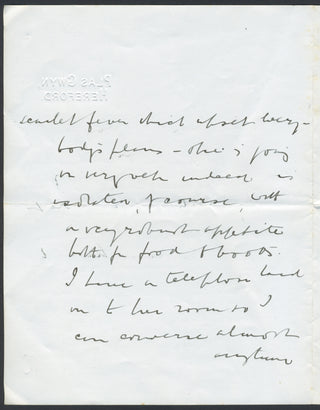 PLAS GWYN
HEREFORD.
scarlet fever which upset every-
body's plans – she is going
on very well indeed is
isolated, of course, with
a very robust appetite
both for food & books.
I have a telephone laid
on to her room so I
can converse almost
anytime